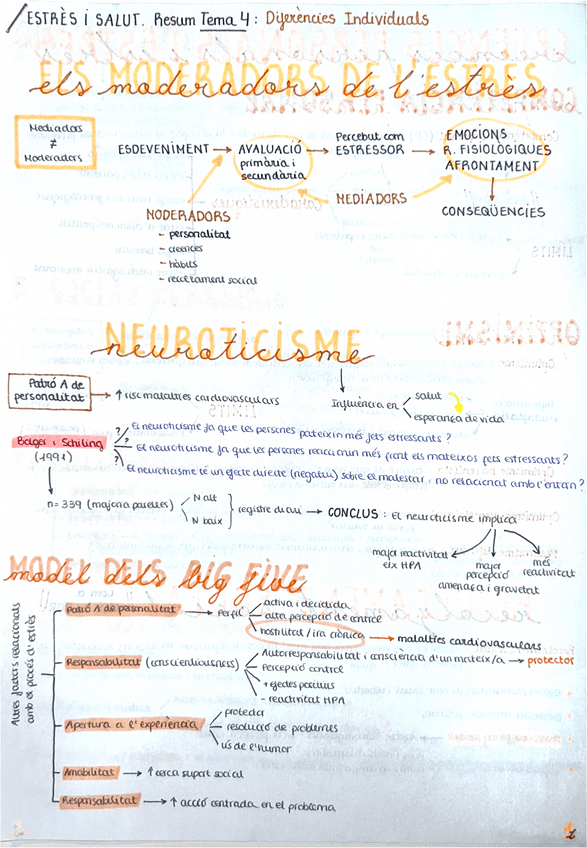 ESTRÈS i SALUT. Resum Tema 4: Diferències Individuals
ELS MODERADORS DE L'ESTRÈS
els moderadors de l'estrès
Mediadors
≠
Moderadors
ESDEVENIMENT → AVALUACIÓ primària i secundària → Percebut com ESTRESSOR → EMOCIONS R. FISIOLÒGIQUES AFRONTAMENT
MODERADORS
MEDIADORS
CONSEQÜÈNCIES
- personalitat
- creences
- hàbits
- recolzament social
NEUROTICISME
neuroticisme
Patró A de personalitat → ↑ risc malalties cardiovasculars
Influència en
salut
esperança de vida
Bolger i Schilling
(1991)
? El neuroticisme fa que les persones pateixin més fets estressants?
? El neuroticisme fa que les persones reaccionin més front els mateixos fets estressants?
? El neuroticisme té un efecte directe (negatiu) sobre el malestar i no relacionat amb l'entorn?
n = 339 (majoria parelles)
N alt
N baix
registre diari → CONCLUS: El neuroticisme implica
major reactivitat eix HPA
major percepció amenaça i gravetat
més reactivitat
MODEL DELS BIG FIVE
model dels big five
Altres factors relacionats amb el procés d'estrès
Patró A de personalitat → Perfil
activa i decidida
alta percepció de control
hostilitat / ira crònica → malalties cardiovasculars
Responsabilitat (conscienciousness)
Autoresponsabilitat i consciència d'un mateix/a → protector
Percepció control
+ efectes positius
- reactivitat HPA
Apertura a l'experiència
protector
resolució de problemes
ús de l'humor
Amabilitat → ↑ cerca suport social
Responsabilitat → ↑ acció centrada en el problema